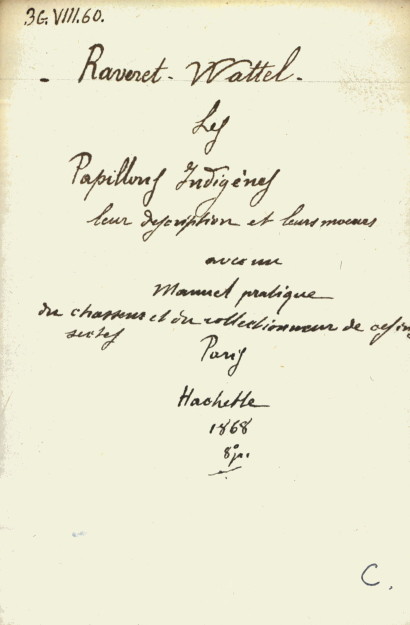 3G.VIII.60.
- Raveret-Wattel-
Les
Papillons Indigènes
leur description et leurs moeurs
avec un
Manuel pratique
du chasseur et du collectionneur de ces in
sectes
Paris
Hachette
1868
8º p.
C.